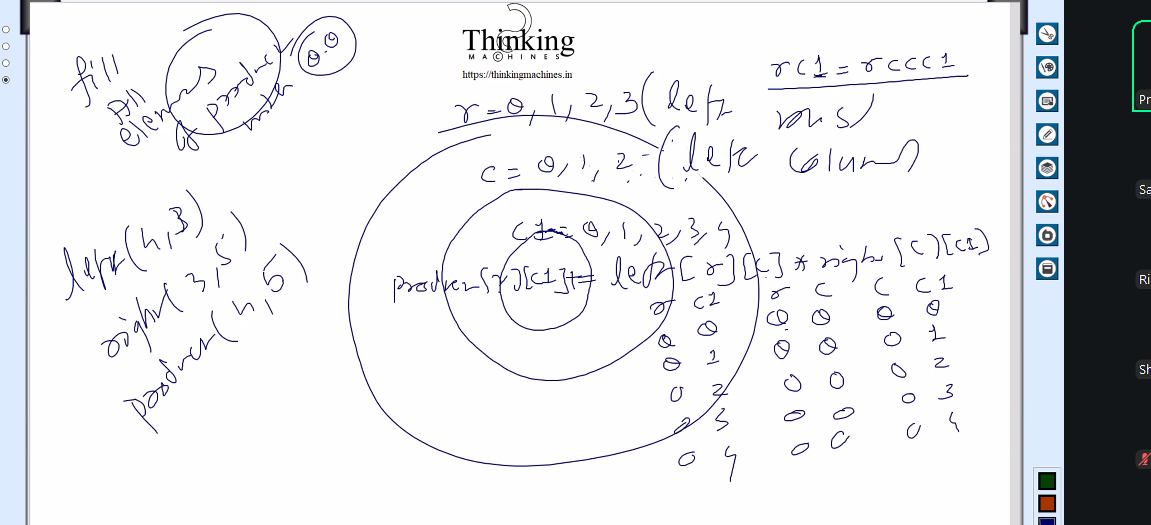 Thinking
MACHINES
https://thinkingmachines.in
fill
all
elements
of product
0.0
rc1 = rccc1
r = 0, 1, 2, 3 (left rows)
c = 0, 1, 2 (left columns)
c1 = 0, 1, 2, 3, 4
product[r][c1] += left[r][c] * right[c][c1]
left(4,3)
right(3,5)
product(4,5)
r c1 r c c c1
0 0 0 0 0 0
0 1 0 0 0 1
0 2 0 0 0 2
0 3 0 0 0 3
0 4 0 0 0 4
Pr
Sa
Ri
Sh